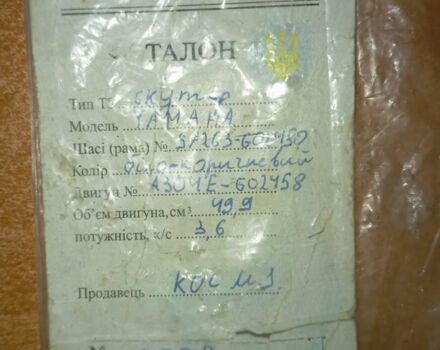 ТАЛОН
Тип Т скутер
Модель ЯМАХА
Шасі (рама) № 3А263-602490
Колір коричневий
Двигуна № А301Е-602458
Об'єм двигуна, см³ 49,9
потужність, к/с 3,6
Продавець